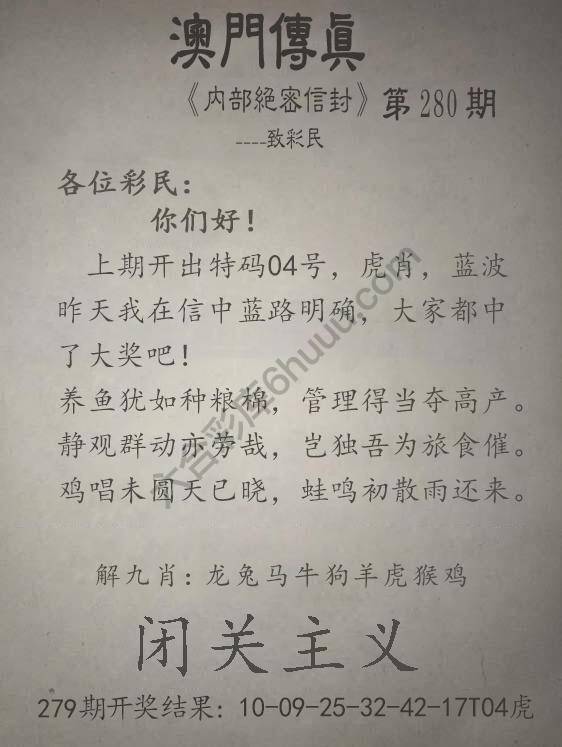 澳門傳真
《内部絕密信封》第280期
----致彩民
各位彩民：
你们好！
上期开出特码04号，虎肖，蓝波
昨天我在信中蓝路明确，大家都中
了大奖吧！
养鱼犹如种粮棉，管理得当夺高产。
静观群动亦劳哉，岂独吾为旅食催。
鸡唱未圆天已晓，蛙鸣初散雨还来。
六合彩库6huuu.com
解九肖：龙兔马牛狗羊虎猴鸡
闭关主义
279期开奖结果：10-09-25-32-42-17T04虎